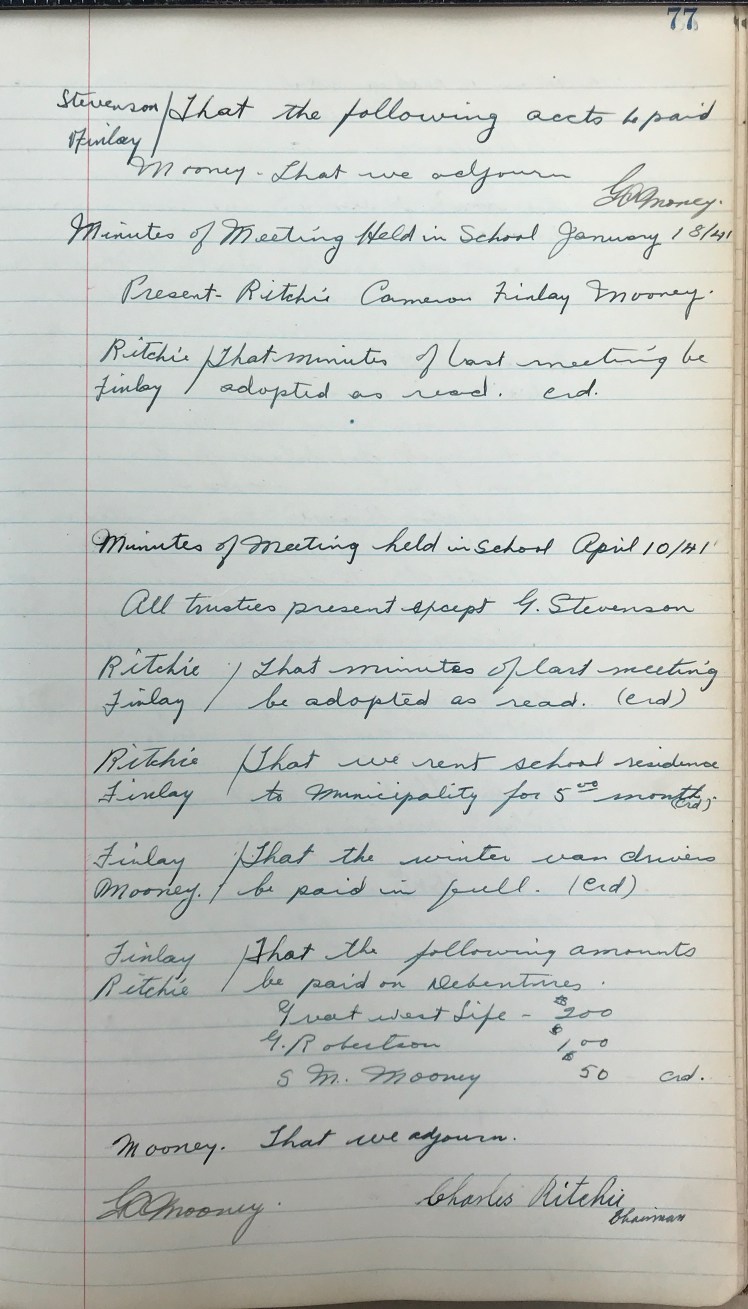 77
Stevenson / That the following accts be paid
Finlay
Mooney - That we adjourn
Mooney.
Minutes of Meeting Held in School January 18/41
Present - Ritchie Cameron Finlay Mooney.
Ritchie / That minutes of last meeting be
Finlay / adopted as read. crd.
Minutes of Meeting held in School April 10/41
All trusties present except G. Stevenson
Ritchie / That minutes of last meeting
Finlay / be adopted as read. (crd)
Ritchie / That we rent school residence
Finlay to Municipality for 5 00 month (crd).
Finlay / That the winter van drivers
Mooney. / be paid in full. (crd)
Finlay / That the following amounts
Ritchie / be paid on Debentures.
Great west Life - $200
G. Robertson $100
S M. Mooney $50 crd.
Mooney. That we adjourn.
Mooney. Charles Ritchie
Chairman